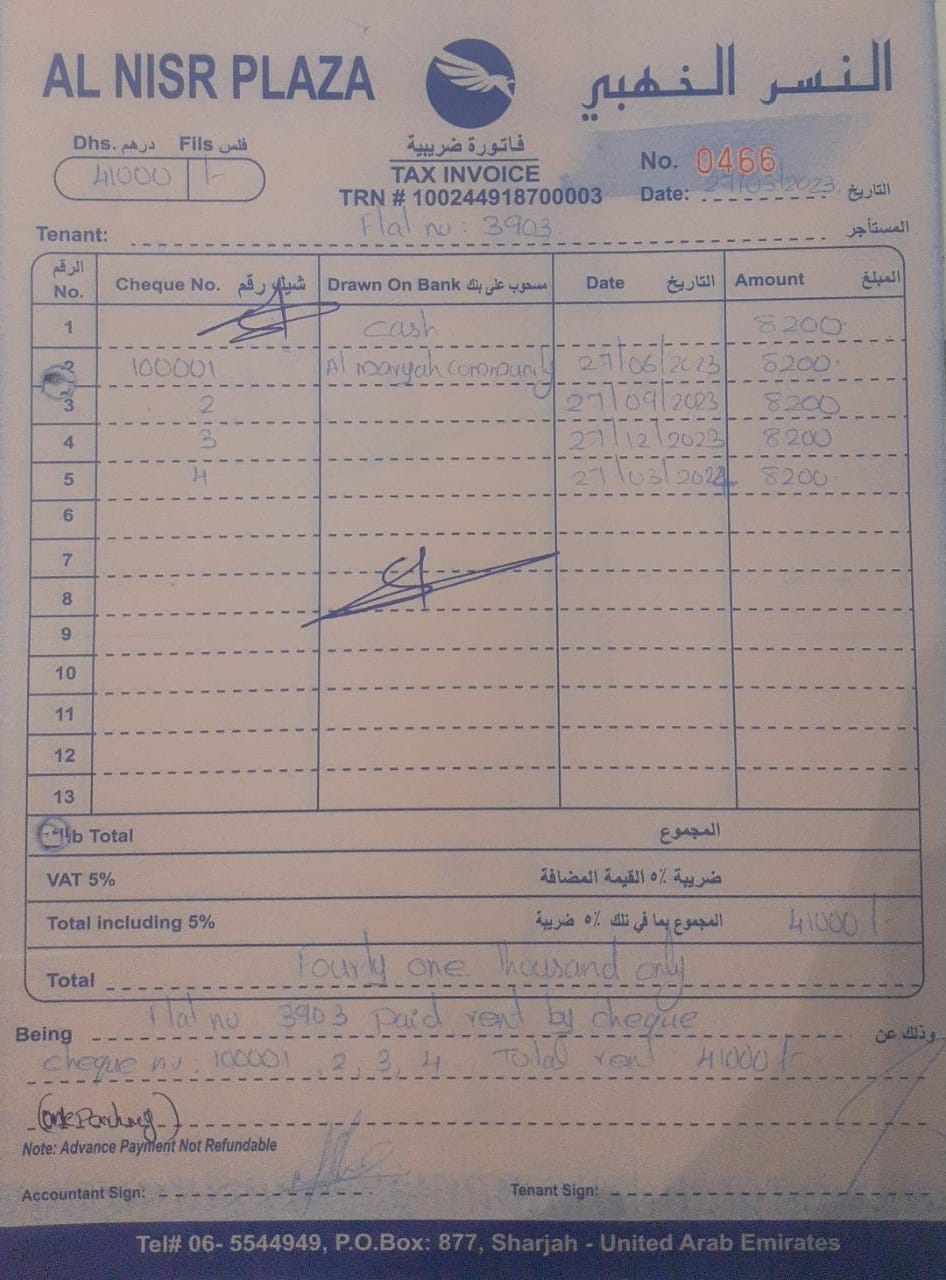 AL NISR PLAZA
النسر الذهبي
Dhs. درهم Fils فلس
41000 /-
فاتورة ضريبية
TAX INVOICE
TRN # 100244918700003
No. 0466
Date: 27/03/2023 التاريخ
Tenant: Flat no : 3903 المستأجر
الرقم No. Cheque No. شيك رقم Drawn On Bank مسحوب على بنك Date التاريخ Amount المبلغ
1 cash 8200
2 100001 Al maryah community 27/06/2023 8200
3 2 27/09/2023 8200
4 3 27/12/2023 8200
5 4 27/03/2024 8200
6
7
8
9
10
11
12
13
Sub Total المجموع
VAT 5% ضريبة ٥٪ القيمة المضافة
Total including 5% المجموع بما في ذلك ٥٪ ضريبة 41000/-
Total Fourty one thousand only
Being Flat no 3903 paid rent by cheque وذلك عن
cheque no. 100001, 2, 3, 4 Total rent : 41000/-
(one Parking)
Note: Advance Payment Not Refundable
Accountant Sign: Tenant Sign:
Tel# 06- 5544949, P.O.Box: 877, Sharjah - United Arab Emirates